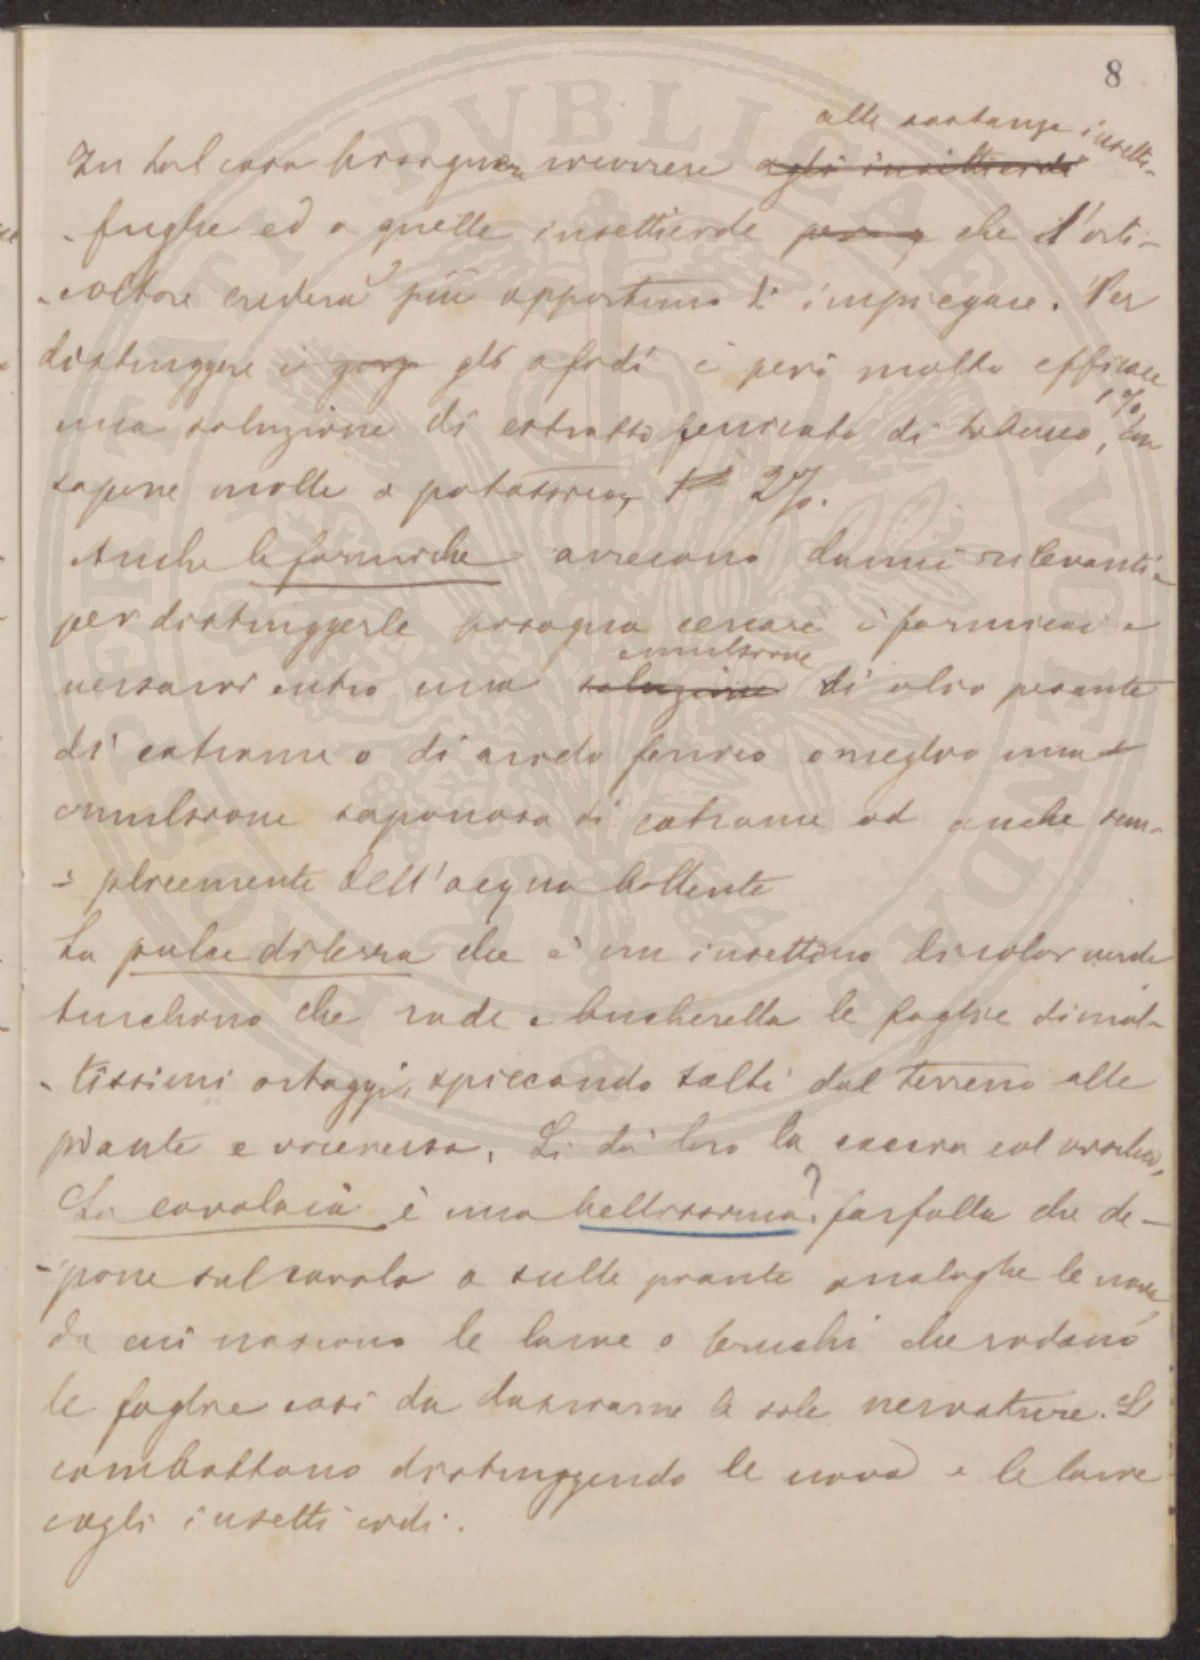 8
alle sostanze insetti-
In tal caso bisogna ricorrere agli insetticidi
-fughe ed a quelle insetticide per q che l'orti-
-coltore crederà più opportuno d'impiegare. Per
distruggere i gorg gli afidi è però molto efficace
una soluzione di estratto fenicato di tabacco, 1% con
sapone molle a potassico, 1% 2%.
Anche le formiche arrecano danni rilevanti -
per distruggerle bisogna cercare i formicai e
emulsione
versarvi entro una soluzione di olio pesante
di catrame o di acido fenico o meglio una
emulsione saponosa di catrame od anche sem-
-plicemente dell'acqua bollente
La pulce di terra che è un insettino di color verde
turchino che rode e bucherella le foglie di mol-
-tissimi ortaggi, spiccando salti dal terreno alle
piante e viceversa. Si dà loro la caccia col vischio.
La cavolaia è una bellissima? farfalla che de-
-pone sul cavolo o sulle piante analoghe le uova
da cui nascono le larve o bruchi che rodono
le foglie così da lasciarne le sole nervature. Si
combattono distruggendo le uova e le larve
cogli insetticidi.